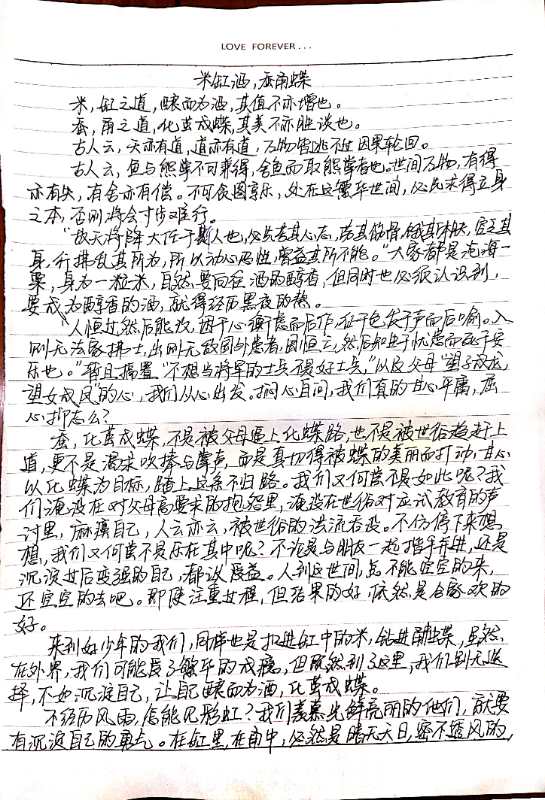 LOVE FOREVER...
米缸酒,蚕甬蝶
米,缸之道,酿而为酒,其值不亦增也。
蚕,甬之道,化茧成蝶,其美不亦胜谈也。
古人云,天亦有道,道亦有道,万物皆逃不过因果轮回。
古人云,鱼与熊掌不可兼得,舍鱼而取熊掌者也。世间万物,有得
亦有失,有舍亦有偿。不可贪图享乐,处在这繁华世间,必先求得立身
之本,否则将会寸步难行。
“故天将降大任于斯人也,必先苦其心志,劳其筋骨,饿其体肤,空乏其
身,行拂乱其所为,所以动心忍性,曾益其所不能。”大家都是沧海一
粟,身为一粒米,自然要向往酒的醇香,但同时也必须认识到,
要成为醇香的酒,就得经历黑夜的熬。
“人恒过然后能改,困于心衡于虑而后作,征于色发于声而后喻。入
则无法家拂士,出则无敌国外患者,国恒亡,然后知生于忧患而死于安
乐也。”暂且搁置“不想当将军的士兵不是好士兵”以及父母“望子成龙
望女成凤”的心,我们从心出发。扪心自问,我们真的甘心平庸,屈
心抑志么?
蚕,化茧成蝶,不是被父母逼上化蝶路,也不是被世俗赶上
道,更不是渴求吹捧与掌声,而是真切得被蝶的美丽而打动,甘心
以化蝶为目标,踏上这条不归路。我们又何尝不是如此呢?我
们淹没在对父母高要求的抱怨里,淹没在世俗对应试教育的声
讨里,麻痹自己,人云亦云,被世俗的浊流吞没。不仿停下来想
想,我们又何尝不是乐在其中呢?不论是与朋友一起携手并进,还是
沉淀过后变强的自己,都谈受益。人到这世间,总不能空空的来,
还空空的去吧。即使注重过程,但结果的好,依然是合家欢的
好。
来到好少年的我们,同样也是扔进缸中的米,钻进甬的蝶,虽然,
在外界,我们可能畏了艰辛的戒瘾,但既然到了这里,我们别无选
择,不如沉淀自己,让自己酿而为酒,化茧成蝶。
不经历风雨,怎能见彩虹?我们羡慕光鲜亮丽的他们,就要
有沉淀自己的勇气。在缸里,在甬中,必然是暗无天日,密不透风的,